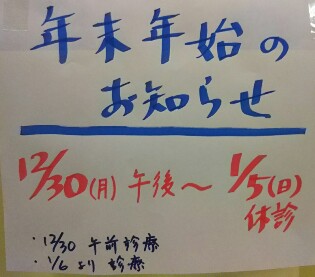 年末年始の
お知らせ
12/30(月)午後〜1/5(日)
休診
・12/30 午前診療
・1/6より診療